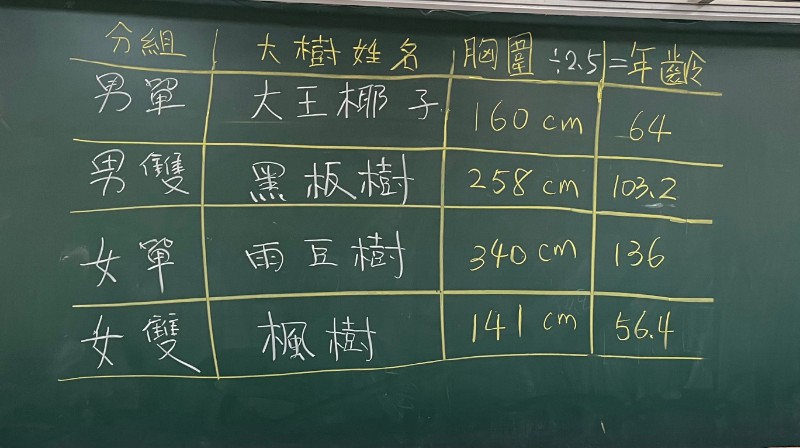 分組 大樹姓名 胸圍÷2.5 =年齡
男單 大王椰子 160cm 64
男雙 黑板樹 258cm 103.2
女單 雨豆樹 340cm 136
女雙 楓樹 141cm 56.4